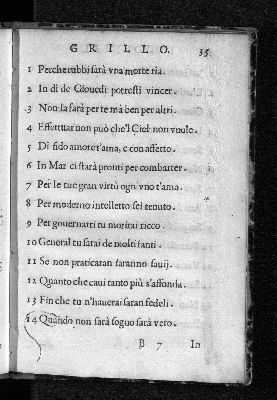 GRILLO. 35
1 Perche rubbi sarà vna morte ria.
2 In dì de Giouedi potresti vincer.
3 Non la sarà per te mà ben per altri.
4 Effettuar non può che'l Ciel non vuole.
5 Di fido amore t'ama, e con affetto.
6 In Mar ci starà pronti per combatter.
7 Per le tue gran virtù ogn'vno t'ama.
8 Per moderno intelletto sei tenuto.
9 Per gouernarti tu morirai ricco.
10 General tu sarai de molti fanti.
11 Se non praticaran saranno sauij.
12 Quanto che caui tanto più s'affonda.
13 Fin che tu n'hauerai saran fedeli.
14 Quando non sarà sogno sarà vero.
B 7 In